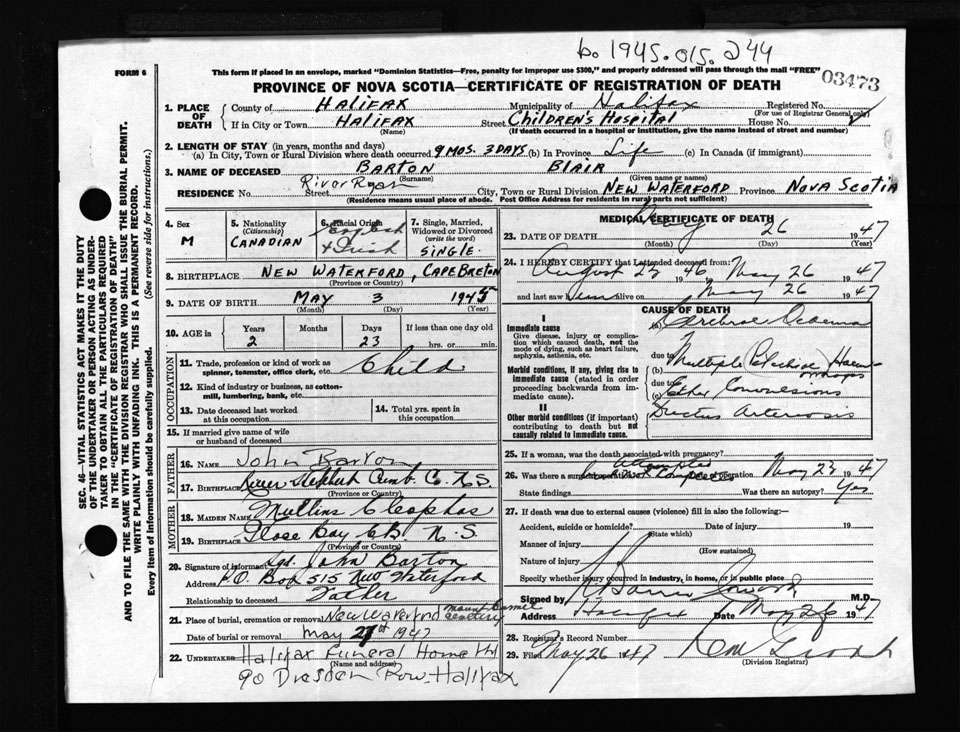 b. 1945.015.244
FORM 6
This form if placed in an envelope, marked "Dominion Statistics—Free, penalty for improper use $300," and properly addressed will pass through the mail "FREE"
03473
PROVINCE OF NOVA SCOTIA—CERTIFICATE OF REGISTRATION OF DEATH
1. PLACE OF DEATH County of HALIFAX Municipality of Halifax Registered No.
(For use of Registrar General only)
If in City or Town HALIFAX Street Children's Hospital House No.
(Name) (If death occurred in a hospital or institution, give the name instead of street and number)
2. LENGTH OF STAY (in years, months and days)
(a) In City, Town or Rural Division where death occurred 9 MOS. 3 DAYS (b) In Province Life (c) In Canada (if immigrant)
3. NAME OF DECEASED BARTON BLAIR
(Surname) (Given name or names)
RESIDENCE No. Street River Ryan City, Town or Rural Division NEW WATERFORD Province NOVA SCOTIA
(Residence means usual place of abode. Post Office Address for residents in rural parts not sufficient)
4. Sex M
5. Nationality (Citizenship) CANADIAN
6. Racial Origin & Irish
7. Single, Married, Widowed or Divorced (write the word) SINGLE.
8. BIRTHPLACE NEW WATERFORD, CAPE BRETON
(Province or Country)
9. DATE OF BIRTH MAY 3 1945
(Month) (Day) (Year)
10. AGE in Years 2 Months Days 23 If less than one day old hrs. or min.
OCCUPATION
11. Trade, profession or kind of work as spinner, teamster, office clerk, etc. Child
12. Kind of industry or business, as cotton-mill, lumbering, bank, etc.
13. Date deceased last worked at this occupation
14. Total yrs. spent in this occupation
15. If married give name of wife or husband of deceased
FATHER
16. NAME John Barton
17. BIRTHPLACE River Hebert Cumb. Co. N.S.
(Province or Country)
MOTHER
18. MAIDEN NAME Mullins Cleophas
19. BIRTHPLACE Glace Bay C.B. N.S.
(Province or Country)
20. Signature of informant Sgd. John Barton
Address P.O. Box 515 New Waterford
Relationship to deceased Father
21. Place of burial, cremation or removal New Waterford Mount Carmel Cemetery
Date of burial or removal May 27 1947
22. UNDERTAKER Halifax Funeral Home Ltd
(Name and address)
90 Dresden Row. Halifax
MEDICAL CERTIFICATE OF DEATH
23. DATE OF DEATH May 26 1947
(Month) (Day) (Year)
24. I HEREBY CERTIFY that I attended deceased from:
August 23 46 to May 26 1947
and last saw him alive on May 26 1947
CAUSE OF DEATH
I
Immediate cause
Give disease, injury or complication which caused death, not the mode of dying, such as heart failure, asphyxia, asthenia, etc.
(a) Cerebral Oedema
due to
Morbid conditions, if any, giving rise to immediate cause (stated in order proceeding backwards from immediate cause).
(b) Multiple Petechial Haemorrhages
due to
(c) Ether Convulsions
II
Other morbid conditions (if important) contributing to death but not causally related to immediate cause.
Ductus Arteriosis
25. If a woman, was the death associated with pregnancy?
26. Was there a surgical operation? Date of operation May 23 1947
Attempted
State findings Was there an autopsy? Yes
27. If death was due to external causes (violence) fill in also the following:—
Accident, suicide or homicide? Date of injury 19
(State which)
Manner of injury
(How sustained)
Nature of injury
Specify whether injury occurred in industry, in home, or in public place
Signed by M.D.
Address Halifax Date May 26 1947
28. Registrar's Record Number
29. Filed May 26 1947
(Division Registrar)
SEC. 46—VITAL STATISTICS ACT MAKES IT THE DUTY OF THE UNDERTAKER OR PERSON ACTING AS UNDERTAKER TO OBTAIN ALL THE PARTICULARS REQUIRED IN THE "CERTIFICATE OF REGISTRATION OF DEATH" AND TO FILE THE SAME WITH THE DIVISION REGISTRAR WHO SHALL ISSUE THE BURIAL PERMIT.
WRITE PLAINLY WITH UNFADING INK. THIS IS A PERMANENT RECORD.
Every item of information should be carefully supplied. (See reverse side for instructions.)